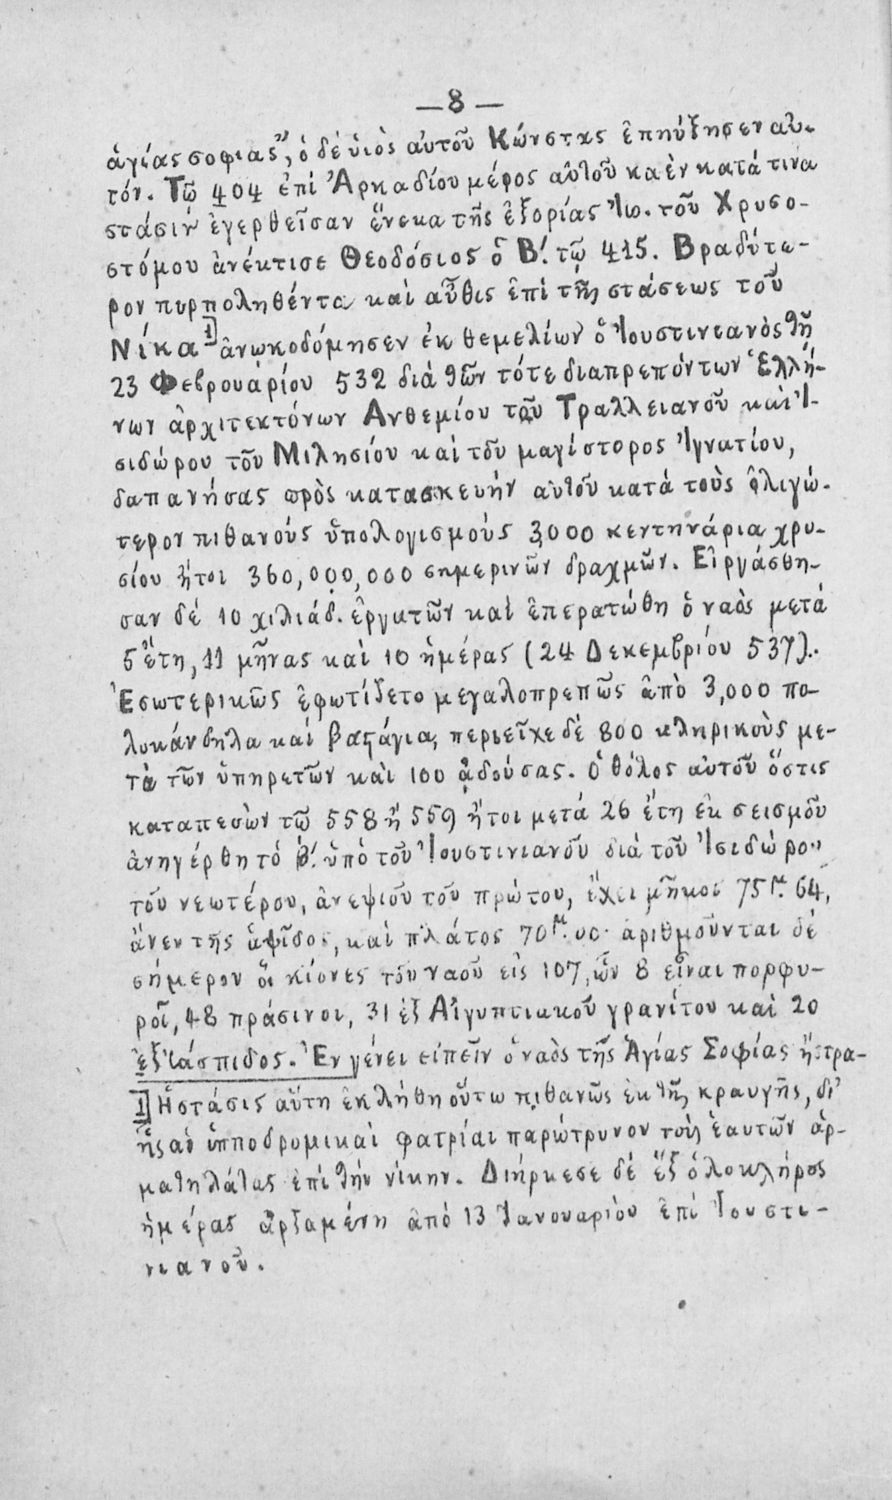 —8—
ἁγίας σοφίας", ὁ δὲ ὑιὸς αὐτοῦ Κώνστας ἐπηύξησεν αὐ-
τόν. Τῷ 404 ἐπὶ Ἀρκαδίου μέρος αὐτοῦ καὲν κατά τινα
στάσιν ἐγερθεῖσαν ἕνεκα τῆς ἐξορίας Ἰω. τοῦ Χρυσο-
στόμου ἀνέκτισε Θεοδόσιος ὁ Β'. τῷ 415. Βραδύτε-
ρον πυρποληθέντα καὶ αὖθις ἐπὶ τῆς στάσεως τοῦ
Νίκα [1] ἀνῳκοδόμησεν ἐκ θεμελίων ὁ Ἰουστινιανὸς τῇ
23 Φεβρουαρίου 532 διὰ τῶν τότε διαπρεπόντων Ἑλλή-
νων ἀρχιτεκτόνων Ανθεμίου τοῦ Τραλλειανοῦ καὶ Ἰ-
σιδώρου τοῦ Μιλησίου καὶ τοῦ μαγίστορος Ἰγνατίου,
δαπανήσας πρὸς κατασκευὴν αὐτοῦ κατὰ τοὺς ὀλιγώ-
τερον πιθανούς ὑπολογισμούς 3,000 κεντηνάρια χρυ-
σίου ἤτοι 360,000,000 σημερινῶν δραχμῶν. Εἰργάσθη-
σαν δέ 10 χιλιάδ. ἐργατῶν καὶ ἐπερατώθη ὁ ναὸς μετά
5 ἔτη, 11 μῆνας καὶ 10 ἡμέρας (24 Δεκεμβρίου 537).
Ἐσωτερικῶς ἐφωτίζετο μεγαλοπρεπῶς ἀπὸ 3,000 πο-
λυκάνδηλα καὶ βαστάγια, περιεῖχε δὲ 800 κληρικοὺς με-
τὰ τῶν ὑπηρετῶν καὶ 100 ᾀδούσας. Ὁ θόλος αὐτοῦ ὅστις
καταπεσὼν τῷ 558 ἢ 559 ἤτοι μετά 26 ἔτη ἐκ σεισμοῦ
ἀνηγέρθη τὸ β'. ὑπὸ τοῦ Ἰουστινιανοῦ διὰ τοῦ Ἰσιδώρο"
τοῦ νεωτέρου, ἀνεψιοῦ τοῦ πρώτου, ἔχει μῆκος 75μ. 64,
ἄνευ τῆς ἁψῖδος, καὶ πλάτος 70μ. 00· ἀριθμοῦνται δὲ
σήμερον οἱ κίονες τοῦ ναοῦ εἰς 107, ὧν 8 εἶναι πορφυ-
ροῖ, 48 πράσινοι, 31 ἐξ Αἰγυπτιακοῦ γρανίτου καὶ 20
ἐξ ἰάσπιδος. Ἐν γένει εἰπεῖν ὁ ναὸς τῆς Ἁγίας Σοφίας ἤστρα-
[1] Ἡ στάσις αὕτη ἐκλήθη οὕτω πιθανῶς ἐκ τῆς κραυγῆς, δι'
ἧς αἱ ἱπποδρομικαὶ φατρίαι παρώτρυνον τοὺς ἑαυτῶν ἁρ-
ματηλάτας ἐπὶ τὴν νίκην. Διήρκεσε δὲ ἓξ ὁλοκλήρος
ἡμέρας ἀρξαμένη ἀπὸ 13 Ἰανουαρίου ἐπὶ Ἰουστι-
νιανοῦ.